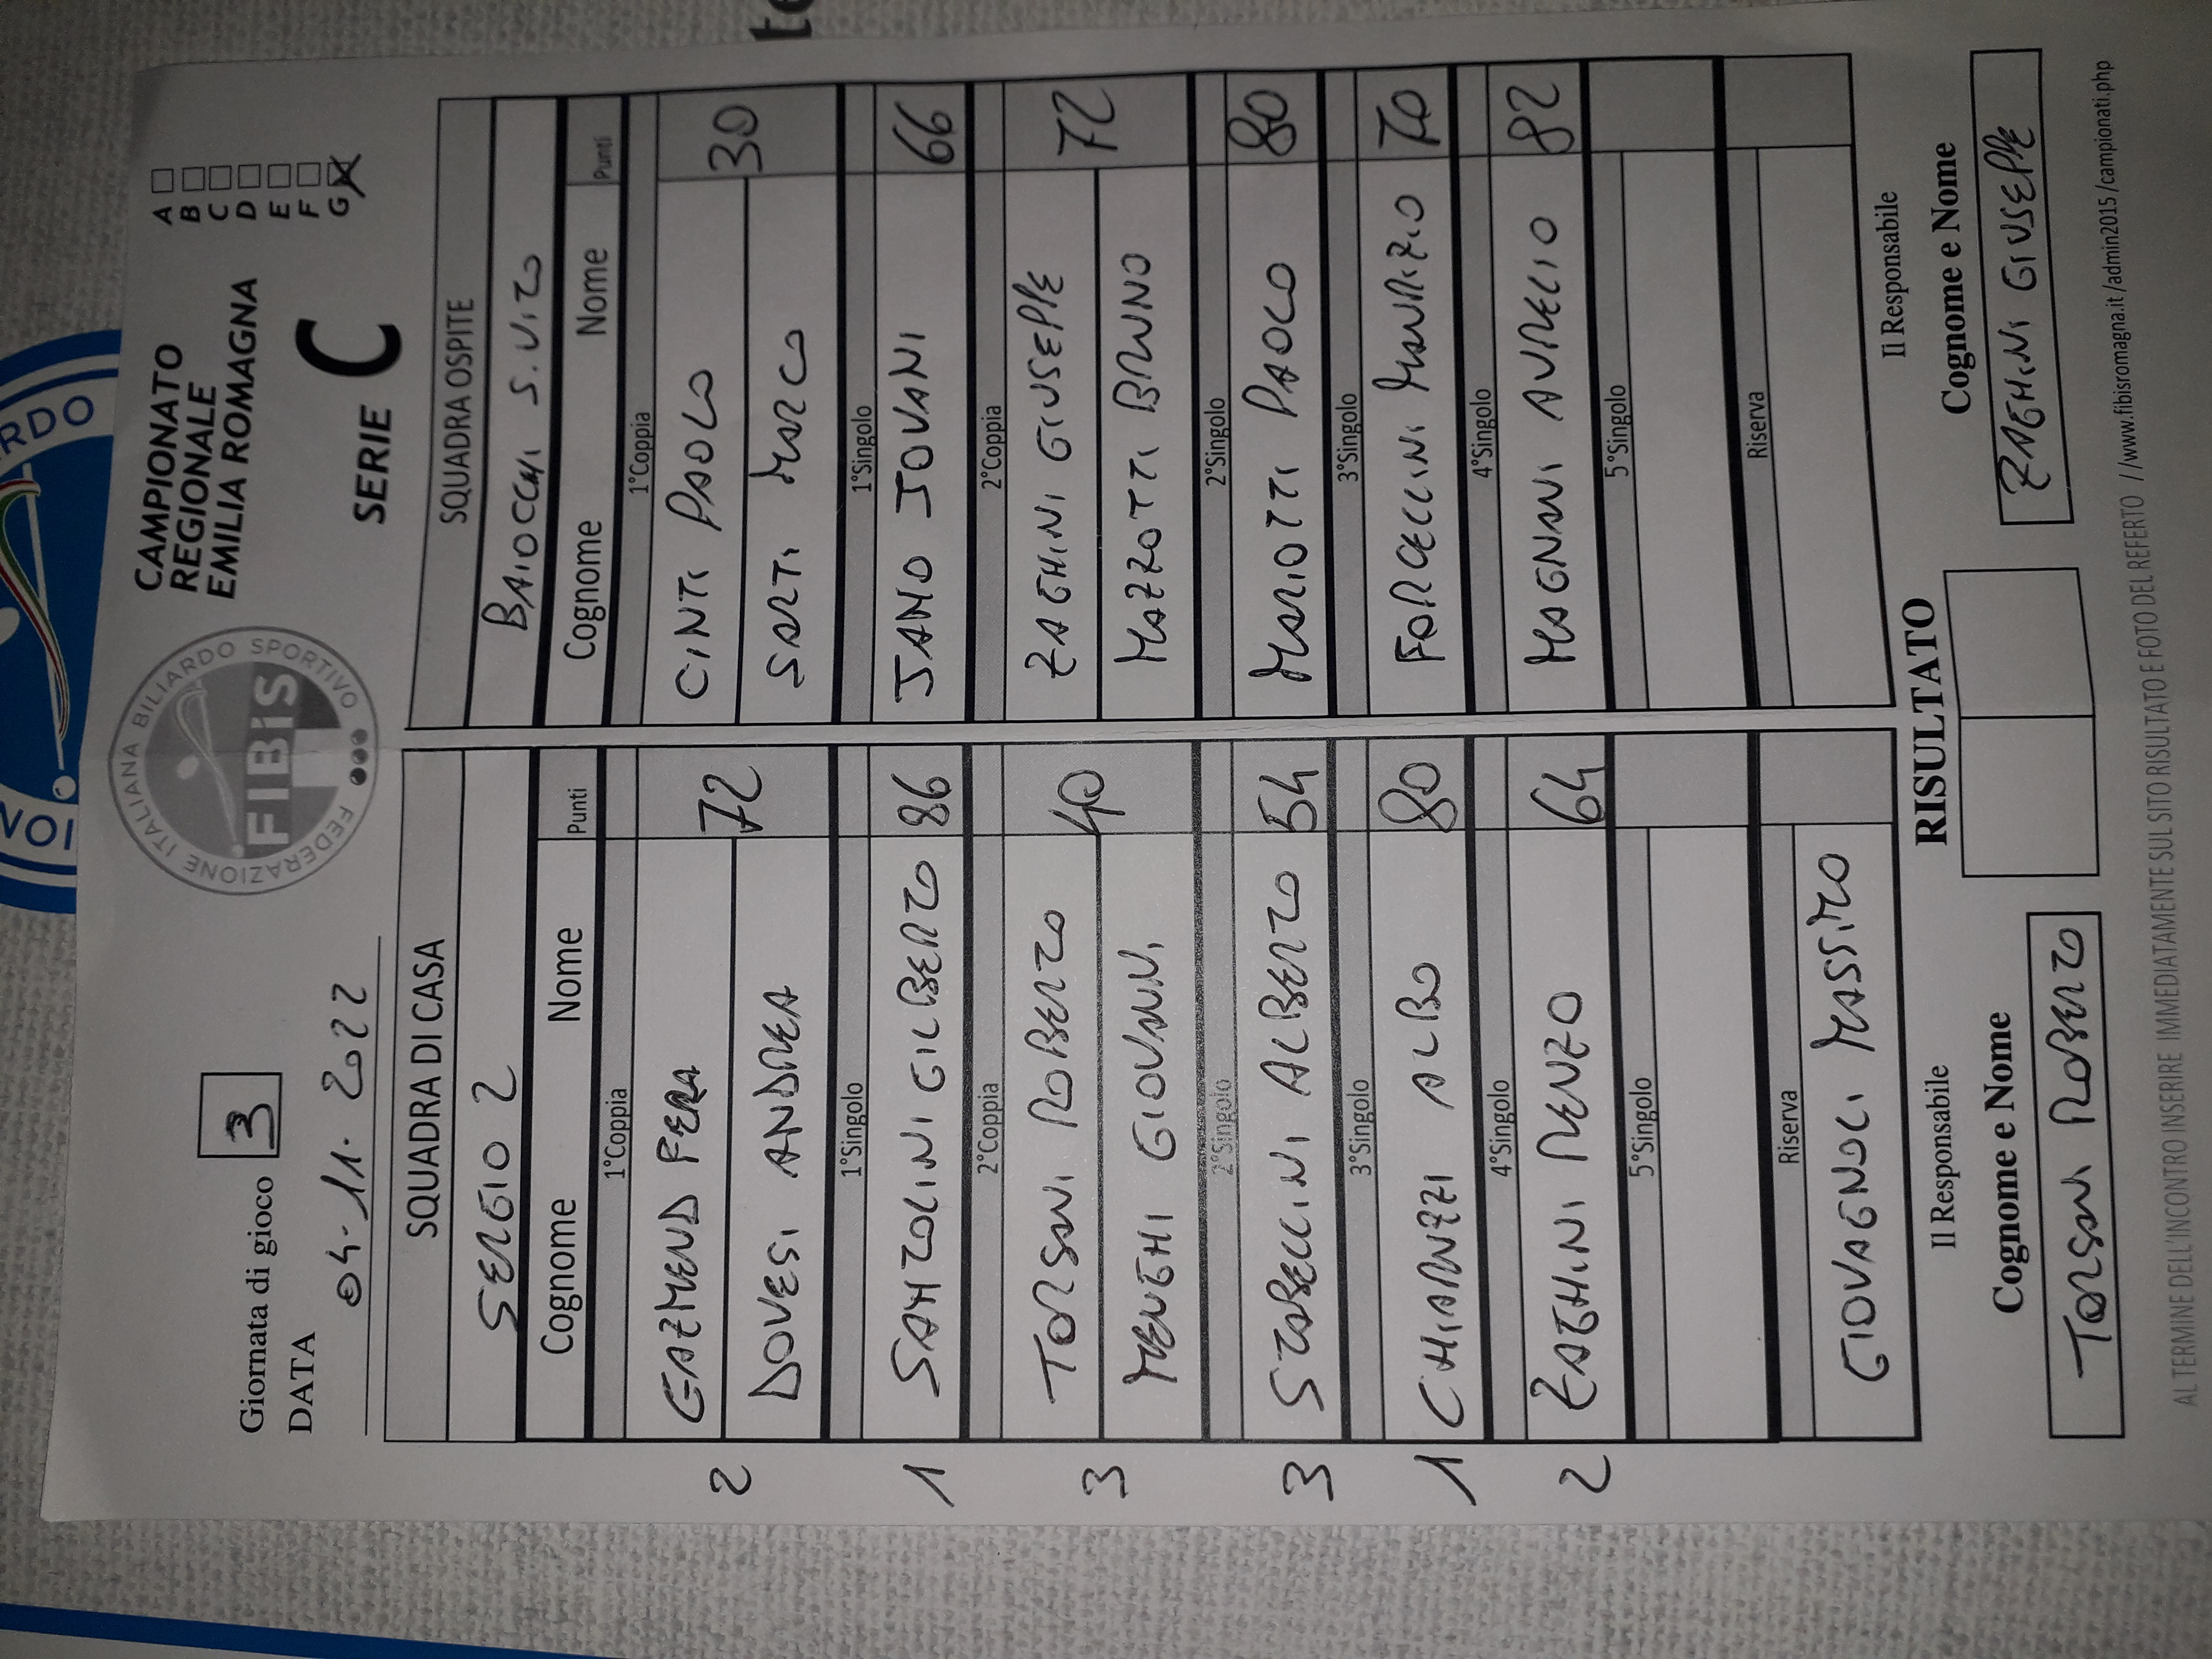 CAMPIONATO
REGIONALE
EMILIA ROMAGNA
A
B
C
D
E
F
G X
SERIE C
FEDERAZIONE ITALIANA BILIARDO SPORTIVO
FIBiS
Giornata di gioco 3
DATA
04-11-2022
SQUADRA DI CASA SQUADRA OSPITE
SERGIO 2 BAIOCCHI S.VITO
Cognome Nome Punti Cognome Nome Punti
1°Coppia 1°Coppia
GAZMEND FERA CINTI PAOLO
2 72 30
DOVESI ANDREA SARTI MARCO
1°Singolo 1°Singolo
1 SANTOLINI GILBERTO 86 JANO JOVANI 66
2°Coppia 2°Coppia
TORSANI ROBERTO ZAGHINI GIUSEPPE
3 40 72
MENGHI GIOVANNI MAZZOTTI BRUNO
2°Singolo 2°Singolo
3 STABELLINI ALBERTO 54 MARIOTTI PAOLO 80
3°Singolo 3°Singolo
1 CHIARUZZI ALBO 80 FORCELLINI MAURIZIO 70
4°Singolo 4°Singolo
2 ZAGHINI RENZO 64 MAGNANI AURELIO 82
5°Singolo 5°Singolo
Riserva Riserva
GIOVAGNOLI MASSIMO
Il Responsabile RISULTATO Il Responsabile
Cognome e Nome Cognome e Nome
TORSANI ROBERTO ZAGHINI GIUSEPPE
AL TERMINE DELL'INCONTRO INSERIRE IMMEDIATAMENTE SUL SITO RISULTATO E FOTO DEL REFERTO //www.fibisromagna.it/admin2015/campionati.php